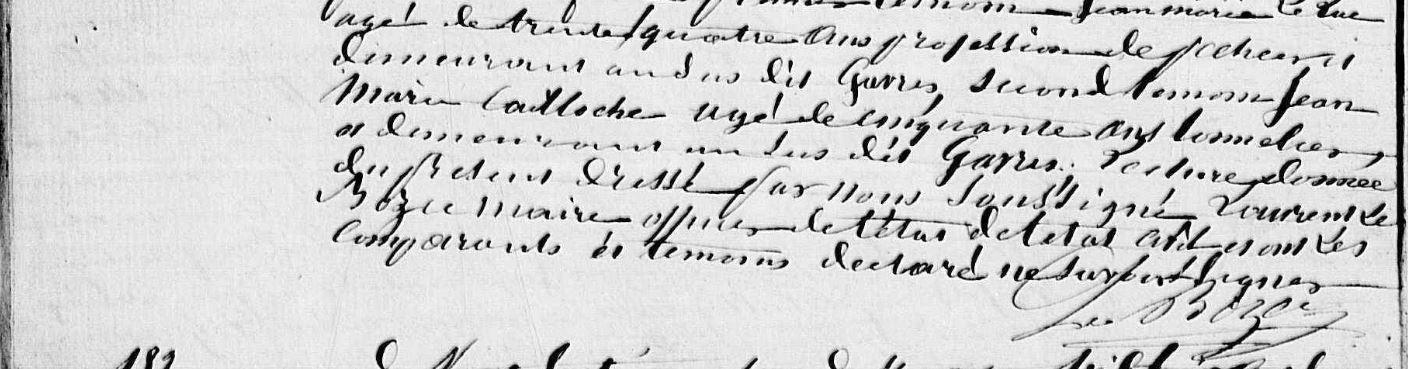 temoin Jean marie Le Luc
agé de trente quatre ans profession de pecheur et
demeurant au dus dit Gavres, second temoin Jean
Marie Cailloche agé de cinquante ans tonnelier
et demeurant au dus dit Gavres. Lecture donnee
du present dressé par nous soussigné Laurent Le
Bozec Maire officier de l'état de l'etat civil et ont Les
comparants et temoins declaré ne savoir signer
Le Bozec
182